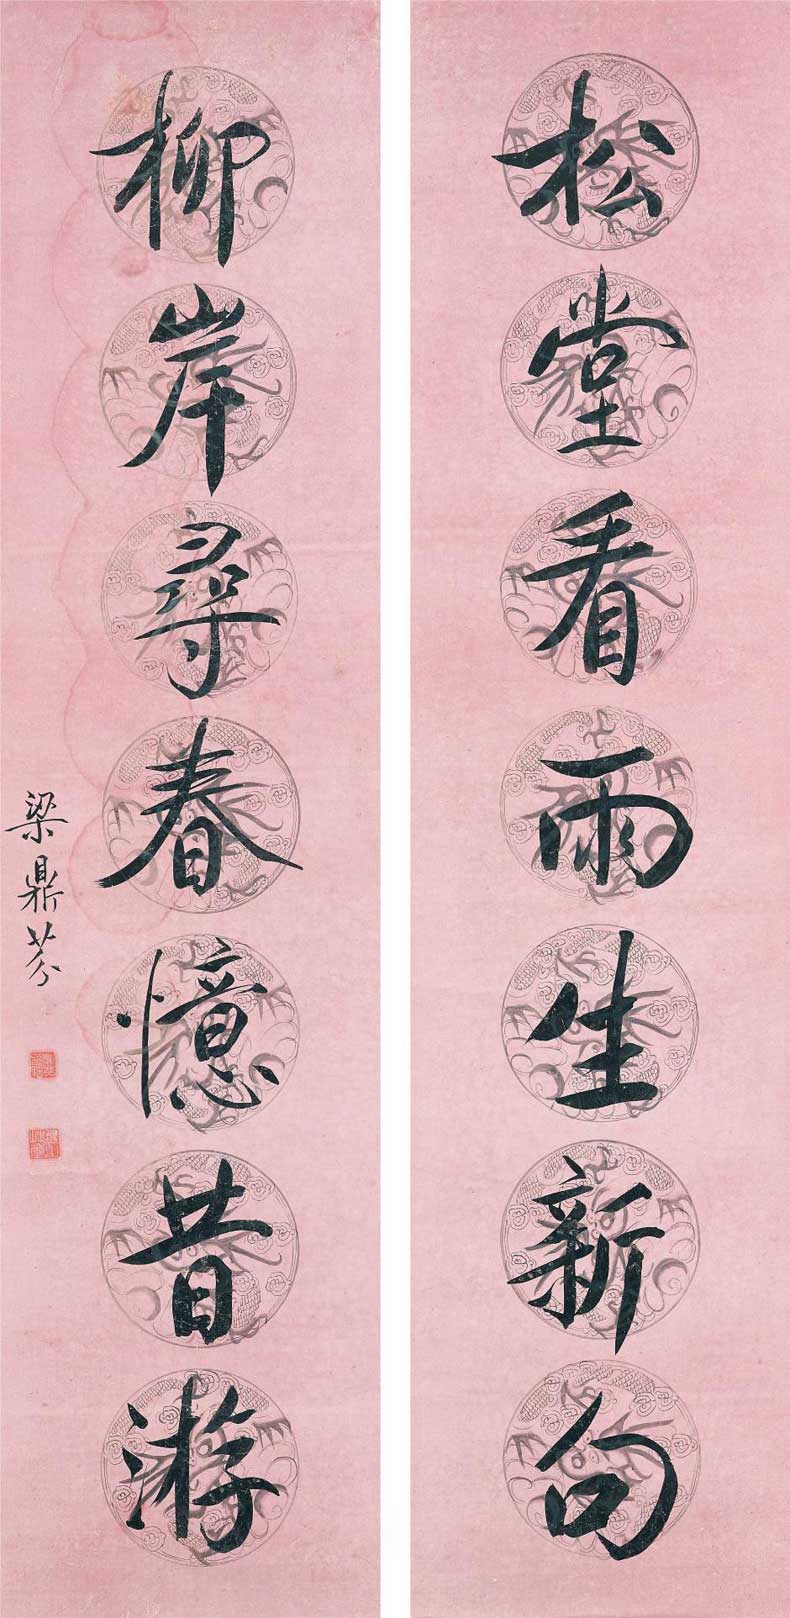 松堂看雨生新句
柳岸尋春憶昔游
梁鼎芬